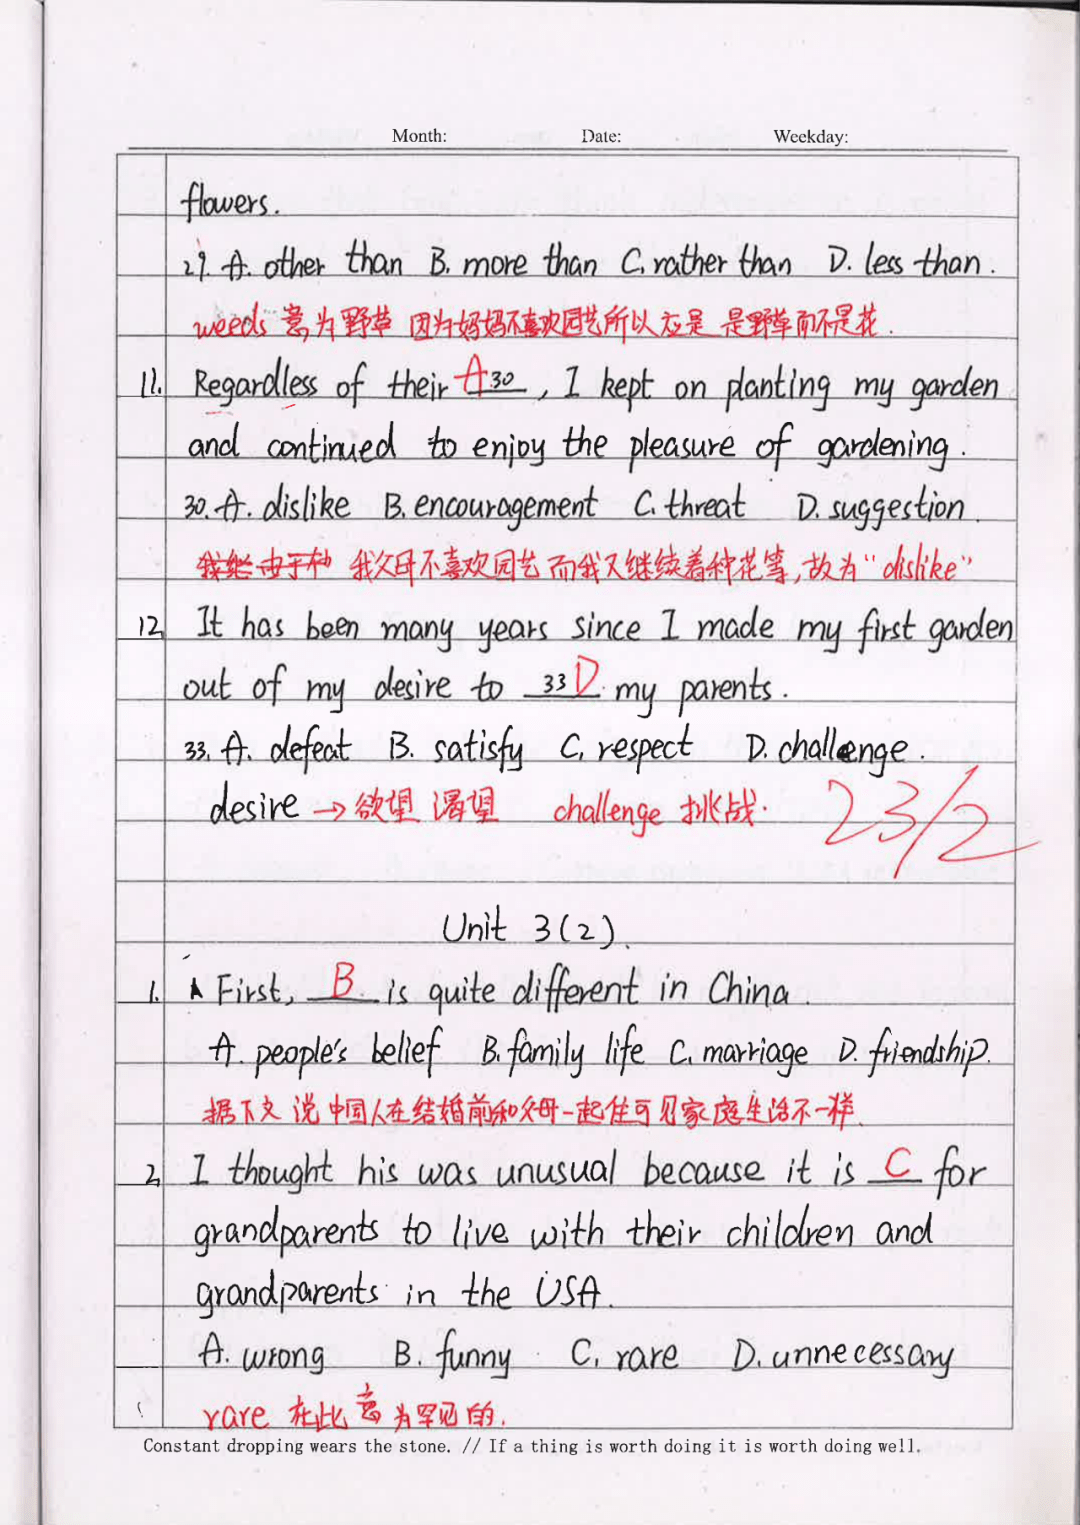 Month: Date: Weekday:
flowers.
29. A. other than B. more than C. rather than D. less than.
weeds 意为野草 因为妈妈不喜欢园艺所以应是 是野草而不是花.
11. Regardless of their A 30 , I kept on planting my garden
and continued to enjoy the pleasure of gardening.
30. A. dislike B. encouragement C. threat D. suggestion.
我父母不喜欢园艺而我又继续着种花等,故为“dislike”
12 It has been many years since I made my first garden
out of my desire to 33 D. my parents.
33. A. defeat B. satisfy C. respect D. challenge.
desire → 欲望 渴望 challenge 挑战.
23/2
Unit 3(2).
1. First, B is quite different in China.
A. people's belief B. family life C. marriage D. friendship.
据下文说中国人在结婚前和父母一起住可见家庭生活不一样.
2, I thought his was unusual because it is C for
grandparents to live with their children and
grandparents in the USA.
A. wrong B. funny C. rare D. unnecessary
rare 在此意为罕见的.
Constant dropping wears the stone. // If a thing is worth doing it is worth doing well.